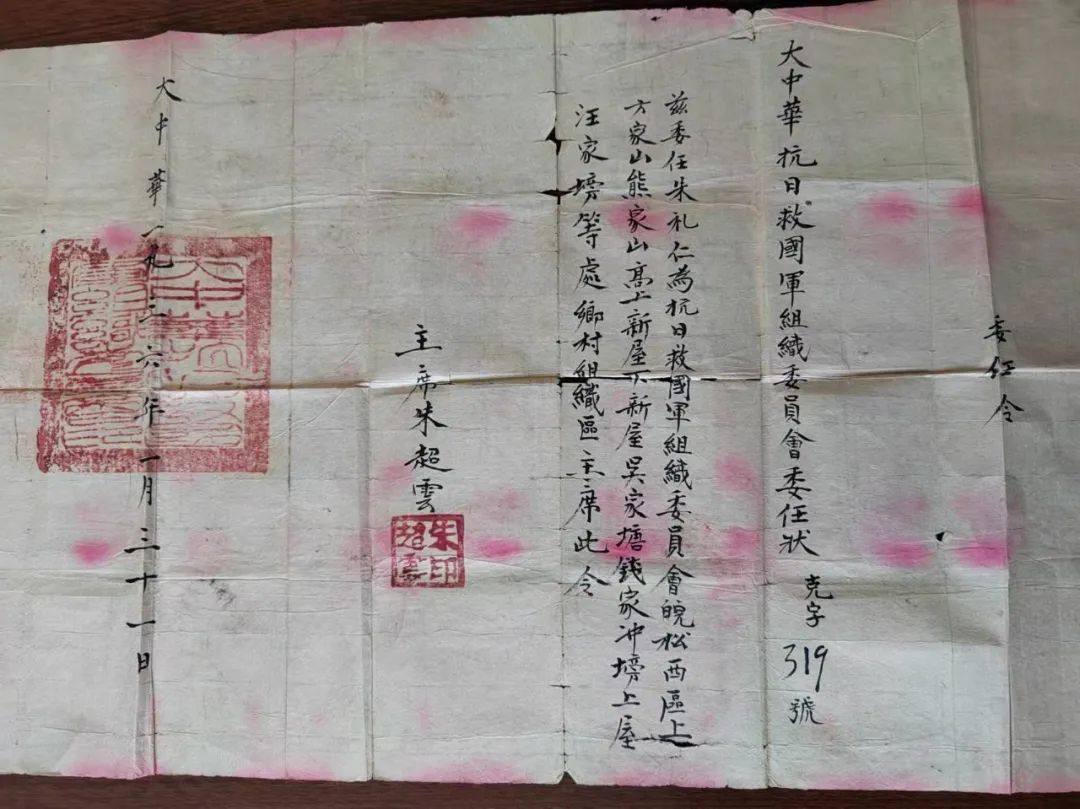 委任令
大中華抗日救國軍組織委員會委任状 克字319號
兹委任朱礼仁為抗日救國軍組織委員會皖松西區上
方家山熊家山髙上新屋下新屋吴家塘钱家冲塝上屋
汪家塝等處鄉村組織區主席此令
主席朱超雲
朱印超雲
大中華一九三六年一月三十一日